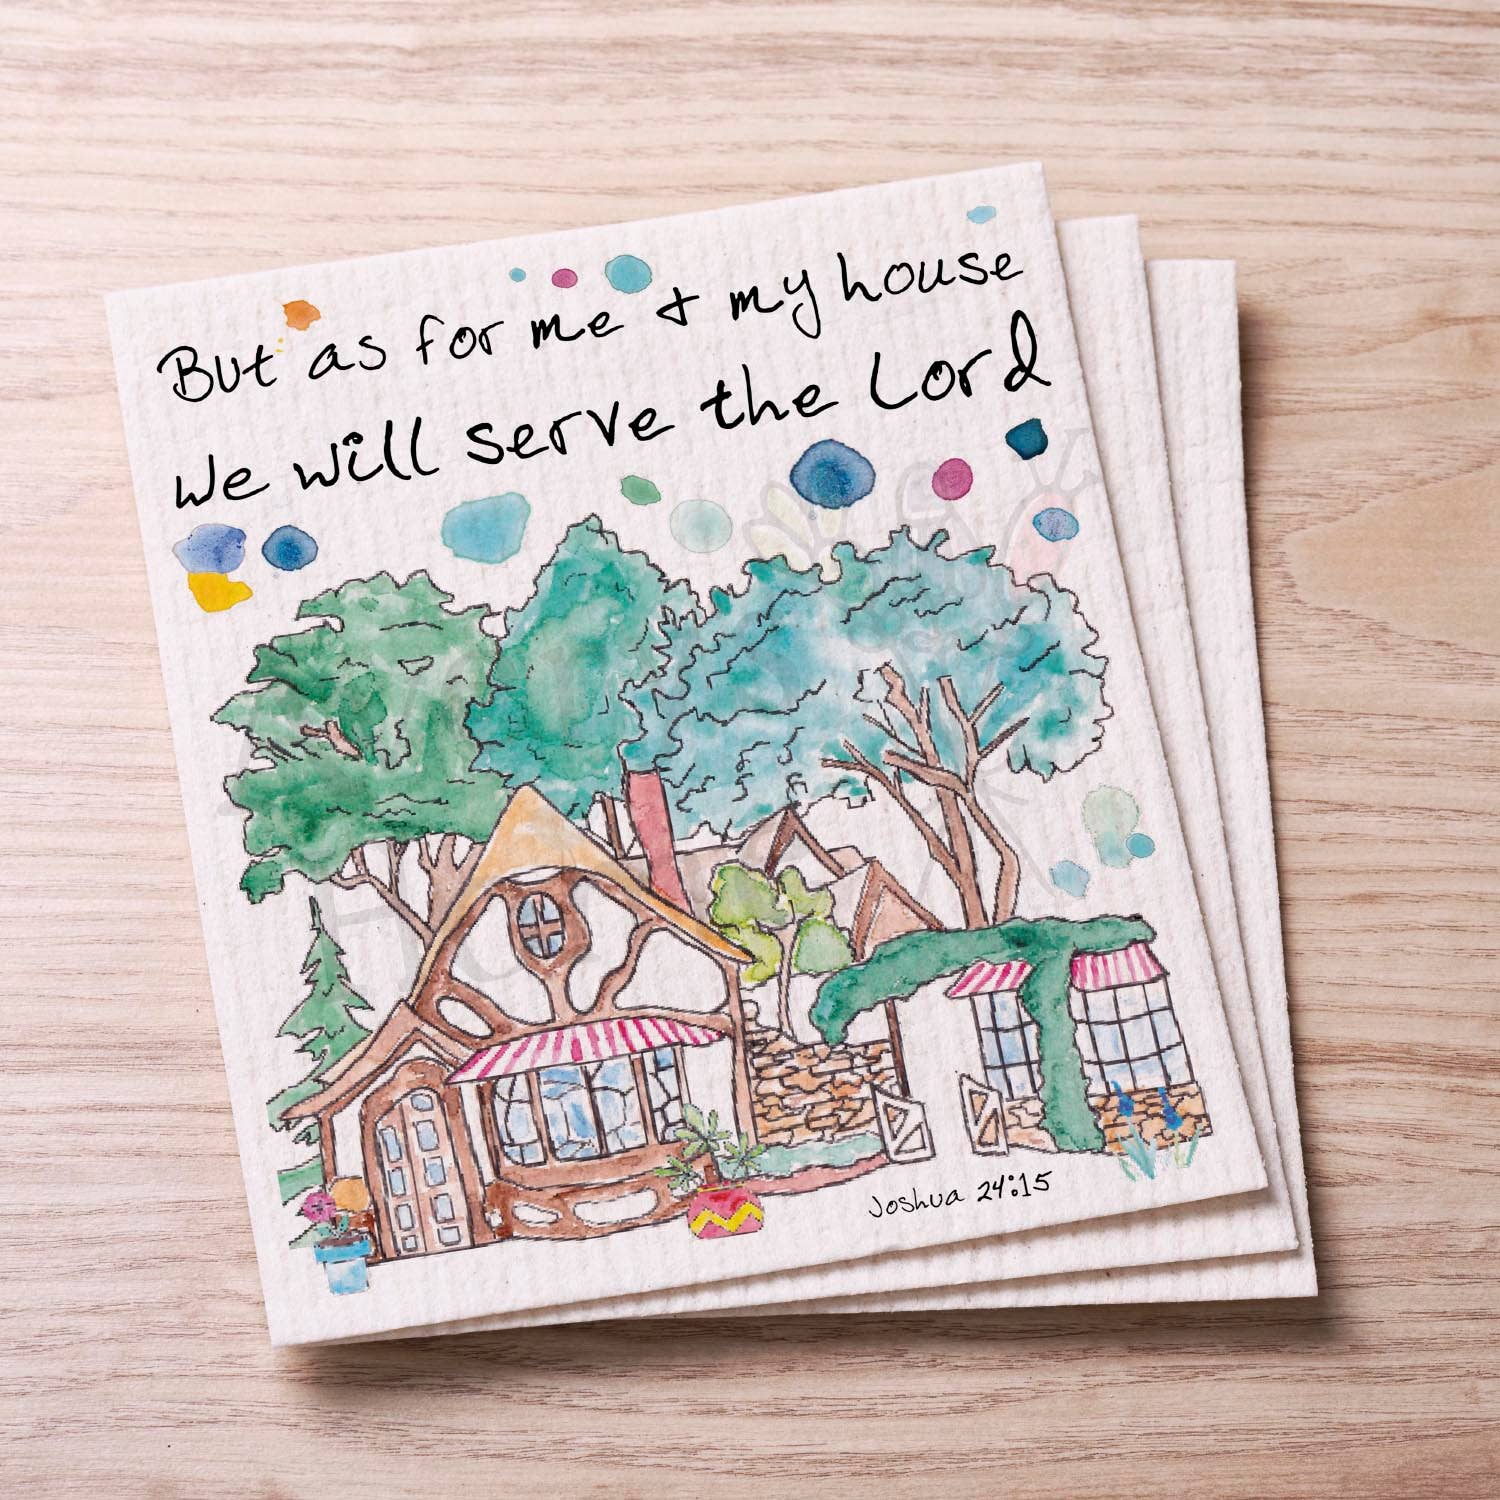 But as for me + my house
we will serve the Lord
Joshua 24:15